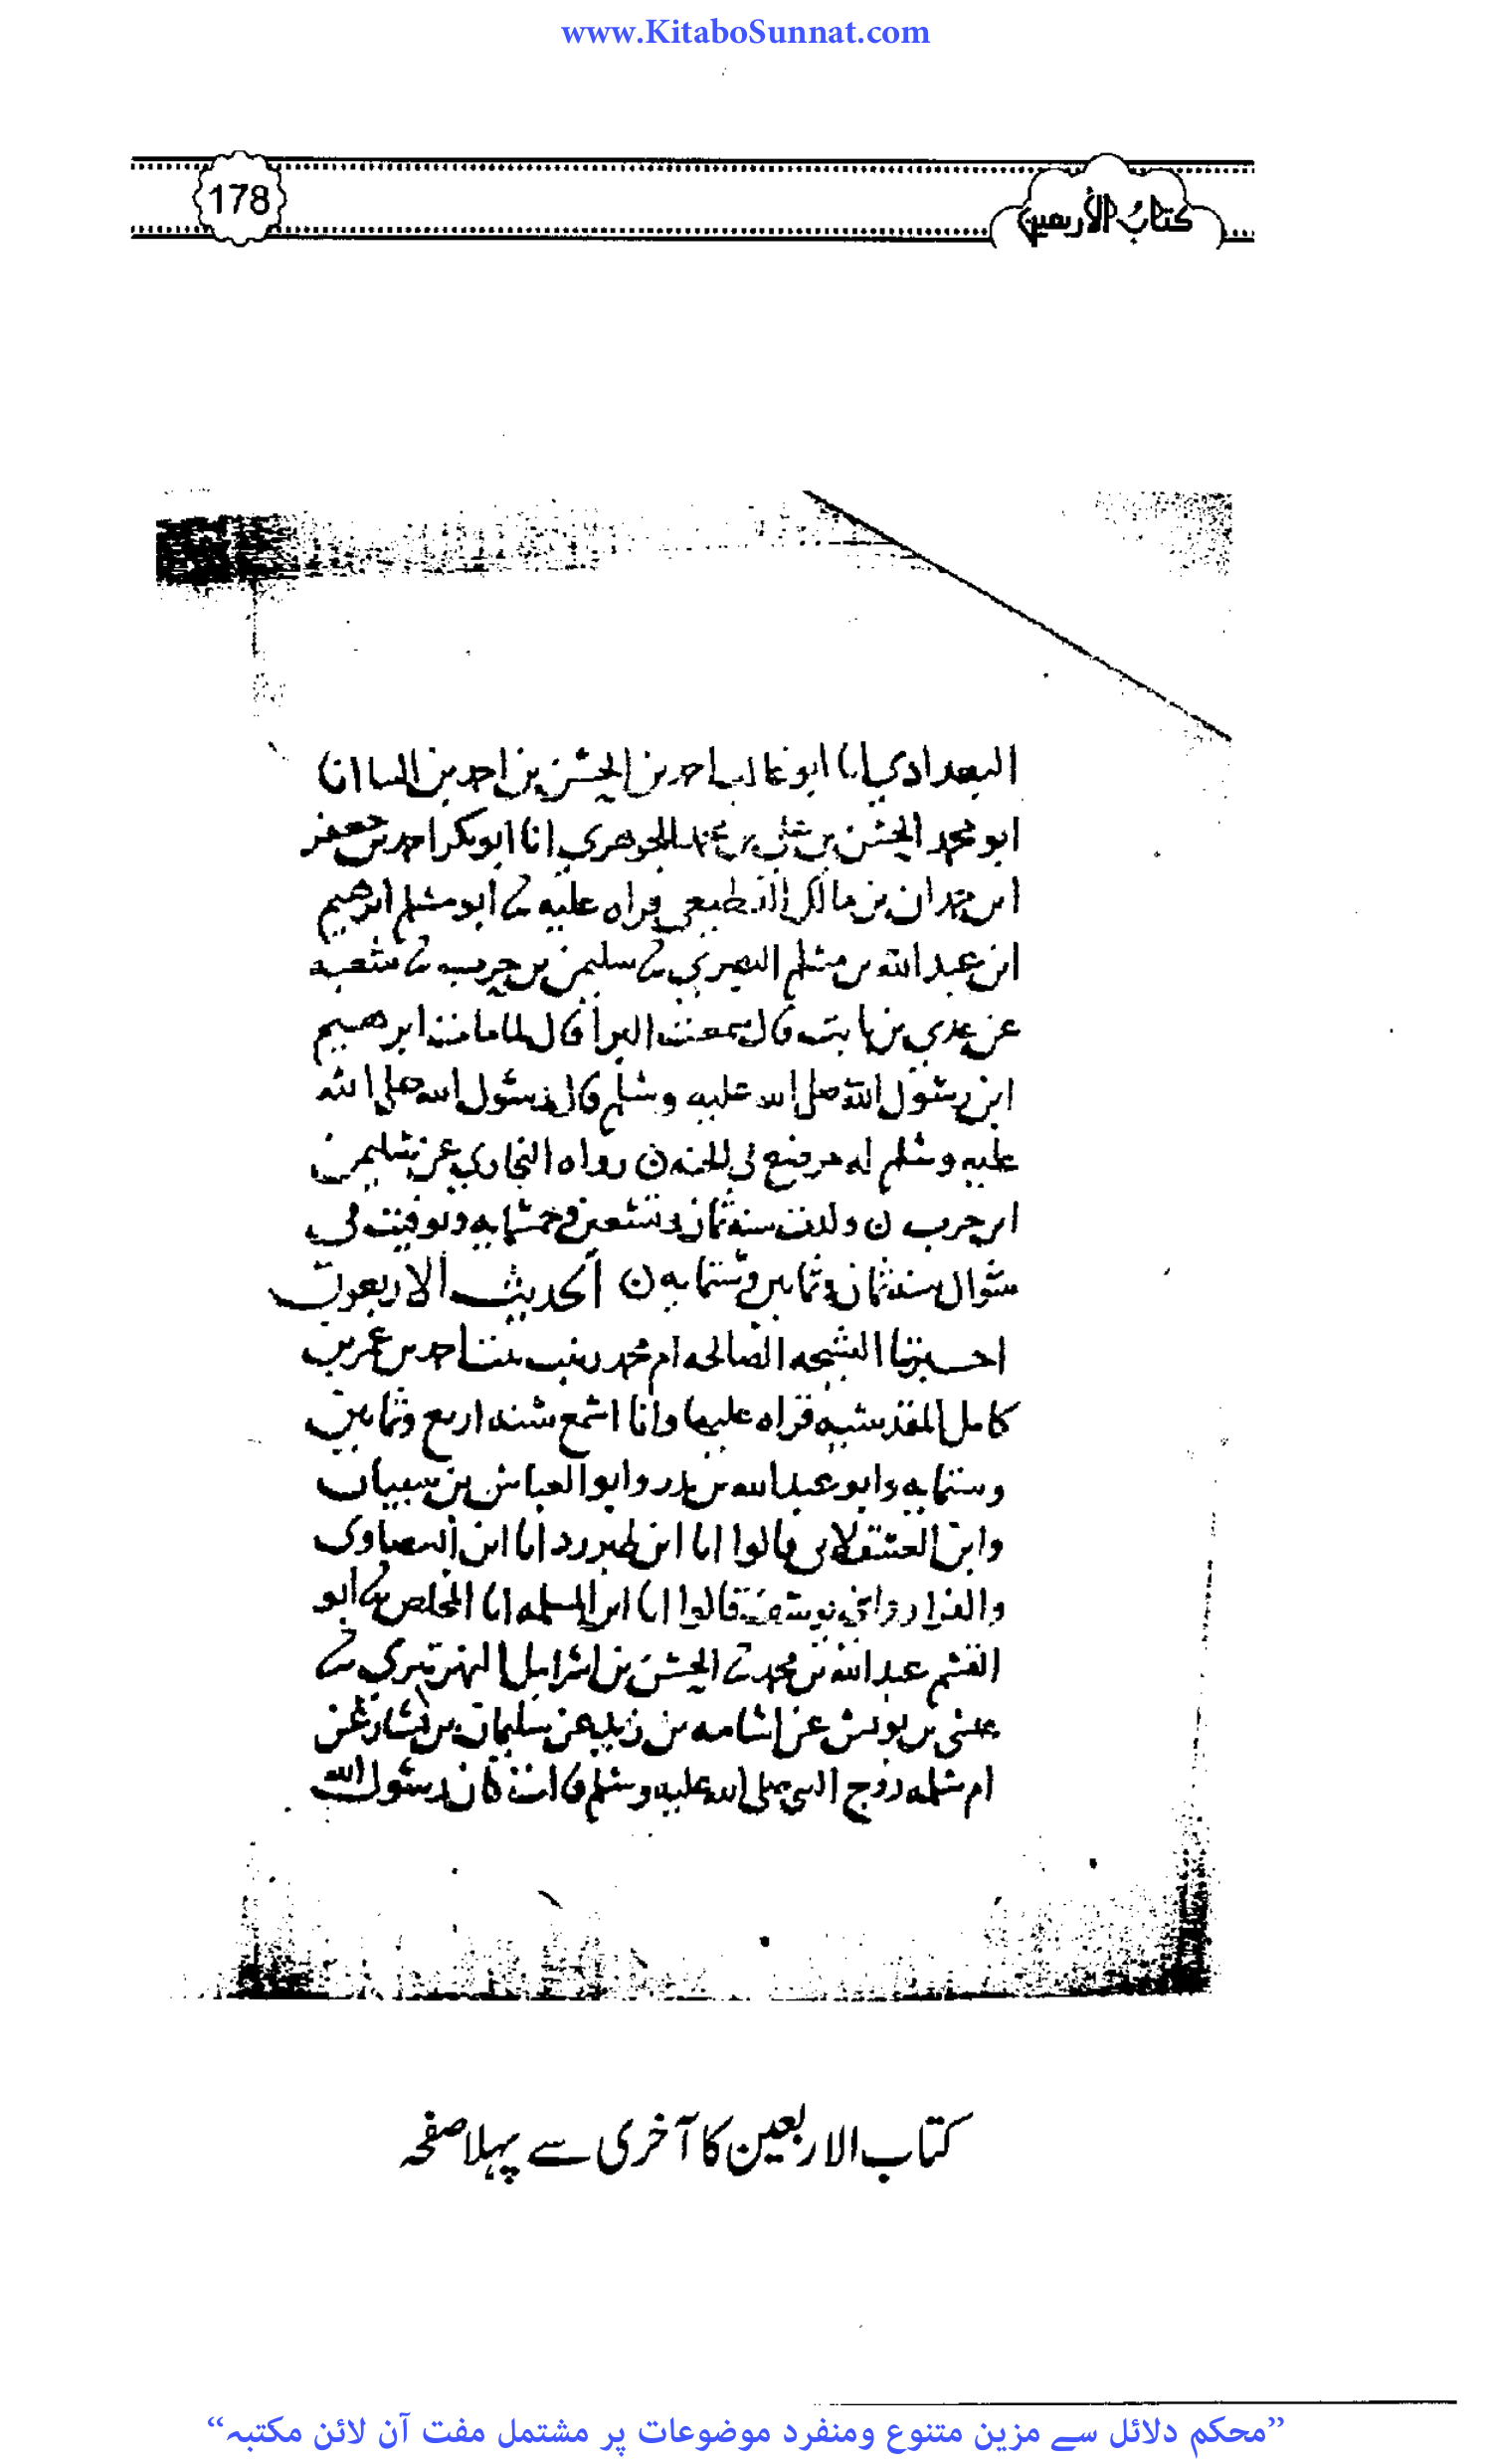 www.KitaboSunnat.com
178
كتاب الأربعين
البغدادي انا ابو غالب احمد بن الحسن بن احمد بن البنا انا
ابو محمد الحسن بن علي بن محمد الجوهري انا ابو بكر احمد بن جعفر
ابن حمدان بن مالك القطيعي قراه عليه ثنا ابو مسلم ابرهيم
ابن عبد الله بن مسلم البصري ثنا سليمن بن حرب ثنا شعبه
عن عدي بن ثابت قال سمعت البرا قال لما مات ابرهيم
ابن رسول الله صلى الله عليه وسلم قال رسول الله صلى الله
عليه وسلم له مرضع في الجنه ن رواه البخاري عن سليمن
ابن حرب ن ولدت سنه ثمان وتسعين وخمسمايه وتوفيت في
شوال سنه ثمان وثمانين وستمايه ن الحديث الاربعون
اخبرتنا الشيخه الصالحه ام محمد زينب بنت احمد بن عمر بن
كامل المقدسيه قراه عليها وانا اسمع سنه اربع وثمانين
وستمايه وابو عبد الله بن بدر وابو العباس بن شيبان
وابن العسقلاني قالوا انا ابن طبرزد انا ابن البيضاوي
والقزاز وابن يوسف قالوا انا ابن المسلمه انا المخلص ثنا ابو
القسم عبد الله بن محمد ثنا الحسن بن اسرايل النهرتيري ثنا
عيسى بن يونس عن اسامه بن زيد عن سليمان بن يسار عن
ام سلمه زوج النبي صلى الله عليه وسلم قالت كان رسول الله
کتاب الاربعین کا آخری سے پہلا صفحہ
”محکم دلائل سے مزین متنوع ومنفرد موضوعات پر مشتمل مفت آن لائن مکتبہ“